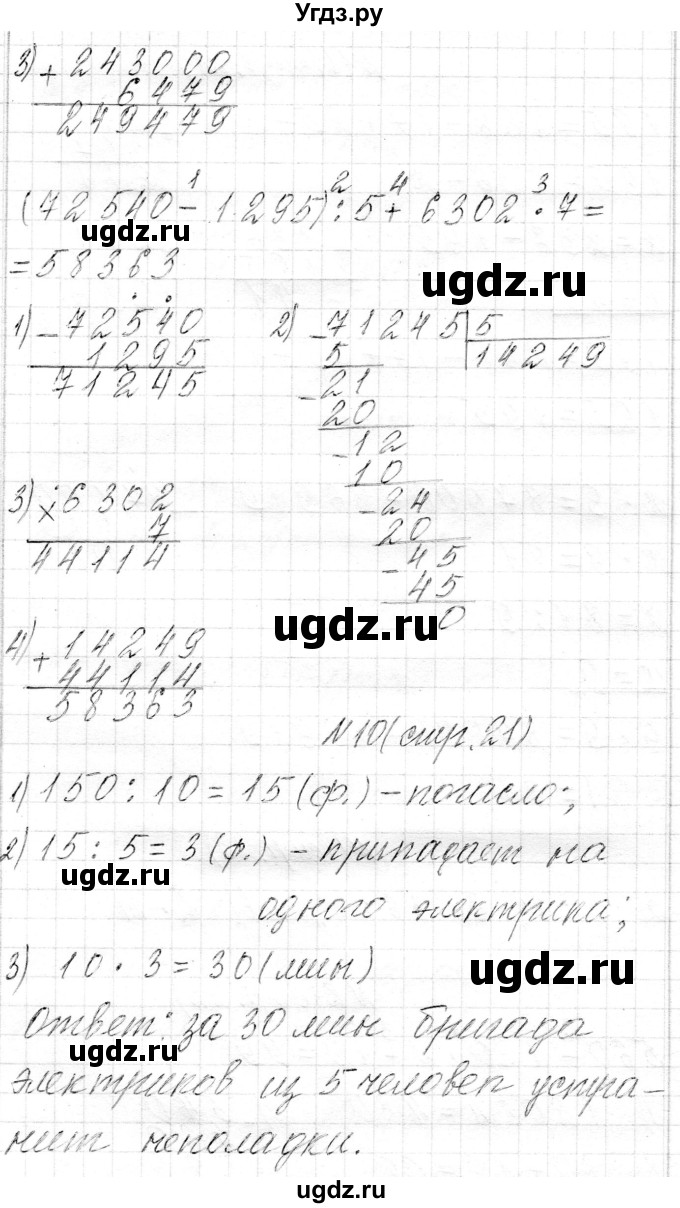 Угдз.ру
3) + 243000
6479
249479
1 2 4 3
(72540 - 1295) : 5 + 6302 · 7 =
ugdz.ru
ugdz.ru
= 58363
1) - 72540
1295
71245
2) - 71245 5
5 14249
- 21
20
- 12
10
- 24
20
- 45
45
0
3) × 6302
7
44114
ugdz.ru
4) + 14249
44114
58363
N10 (стр. 21)
1) 150 : 10 = 15 (ф.) - погасло;
2) 15 : 5 = 3 (ф.) - припадает на
ugdz.ru
одного электрика;
3) 10 · 3 = 30 (мин)
ugdz.ru
Ответ: за 30 мин бригада
ugdz.ru
электриков из 5 человек устра-
нит неполадки.
ugdz.ru